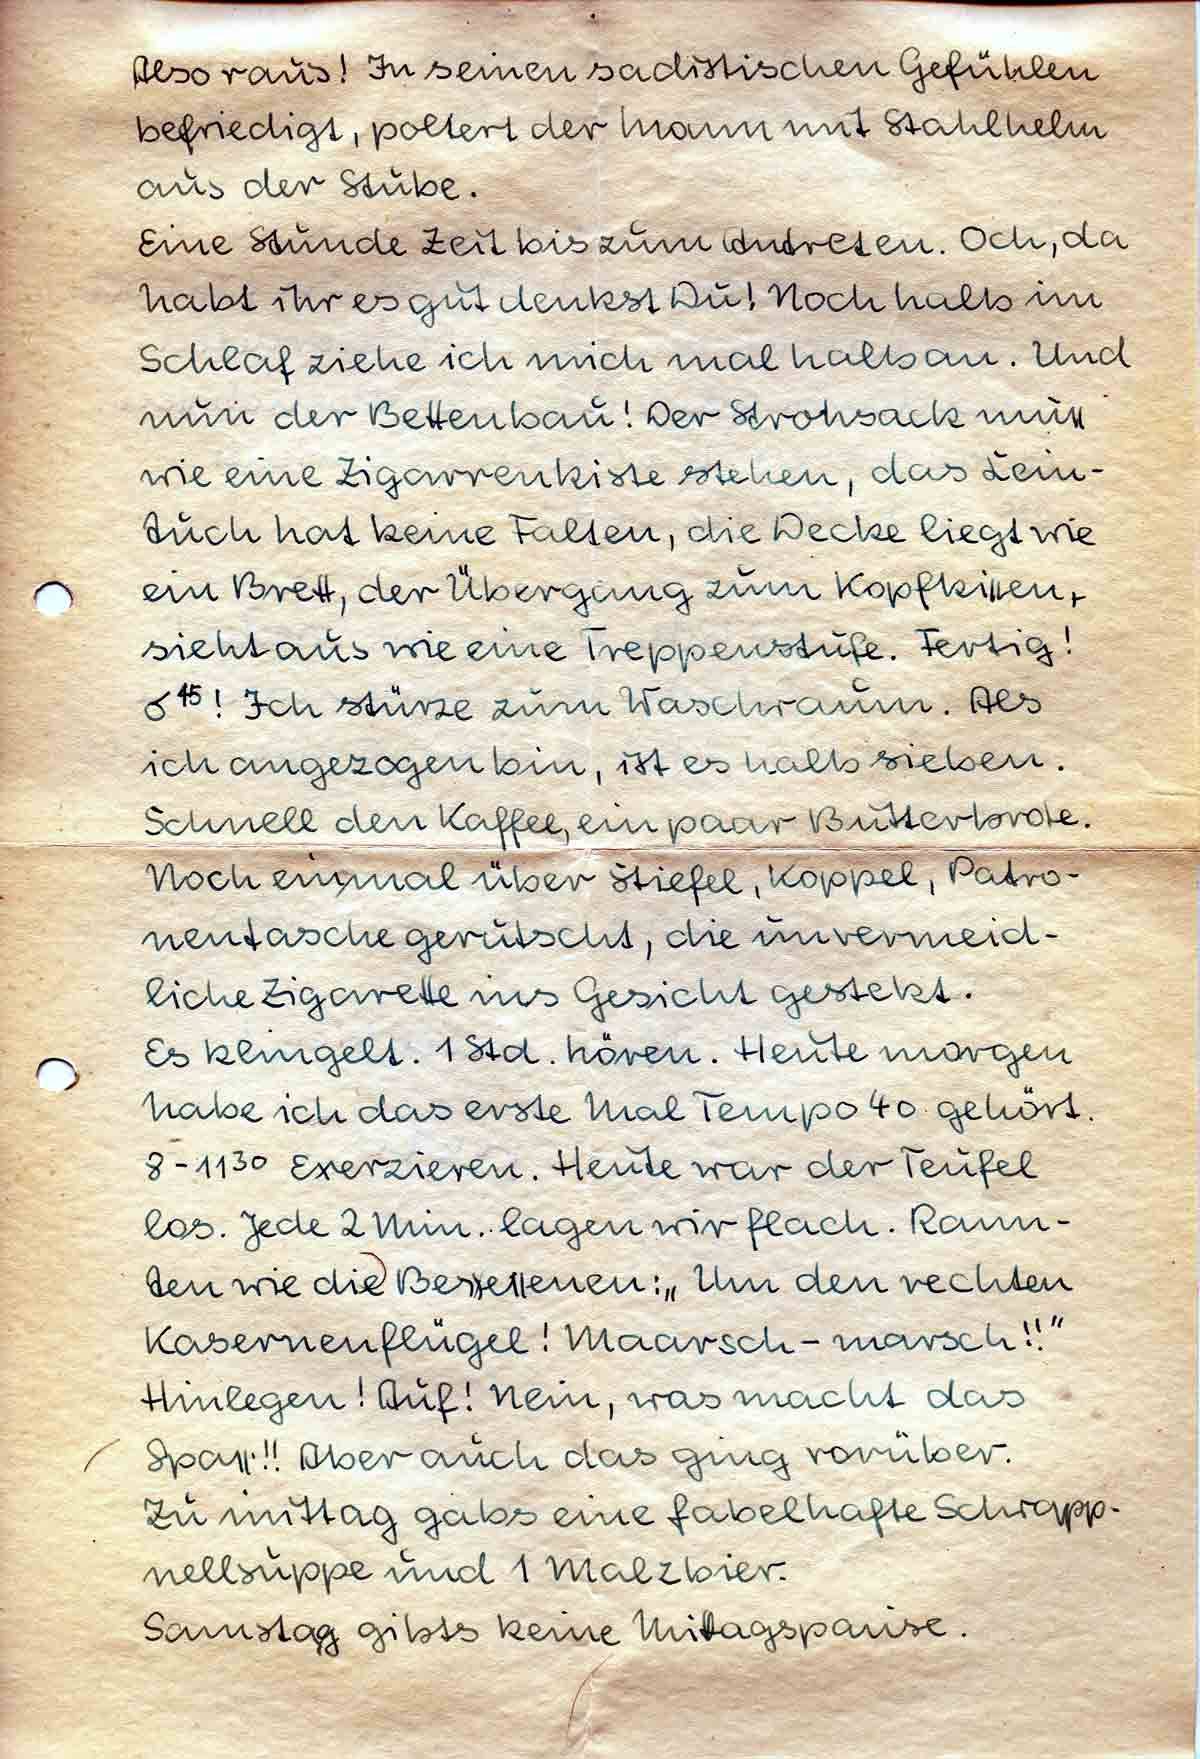 Also raus! In seinen sadistischen Gefühlen
befriedigt, poltert der Mann mit Stahlhelm
aus der Stube.
Eine Stunde Zeit bis zum Antreten. Och, da
habt ihr es gut denkst Du! Noch halb im
Schlaf ziehe ich mich mal halb an. Und
nun der Bettenbau! Der Strohsack muß
wie eine Zigarrenkiste stehen, das Lein-
tuch hat keine Falten, die Decke liegt wie
ein Brett, der Übergang zum Kopfkissen,
sieht aus wie eine Treppenstufe. Fertig!
6¹⁵! Ich stürze zum Waschraum. Als
ich angezogen bin, ist es halb sieben.
Schnell den Kaffee, ein paar Butterbrote.
Noch einmal über Stiefel, Koppel, Patro-
nentasche gerutscht, die unvermeid-
liche Zigarette ins Gesicht gestekt.
Es klingelt. 1 Std. hören. Heute morgen
habe ich das erste Mal Tempo 40 gehört.
8-11³⁰ Exerzieren. Heute war der Teufel
los. Jede 2 Min. lagen wir flach. Rann-
ten wie die Besessenen: „Um den rechten
Kasernenflügel! Maarsch-marsch!!"
Hinlegen! Auf! Nein, was macht das
Spaß!! Aber auch das ging vorüber.
Zu mittag gabs eine fabelhafte Schrapp-
nellsuppe und 1 Malzbier.
Samstag gibts keine Mittagspause.